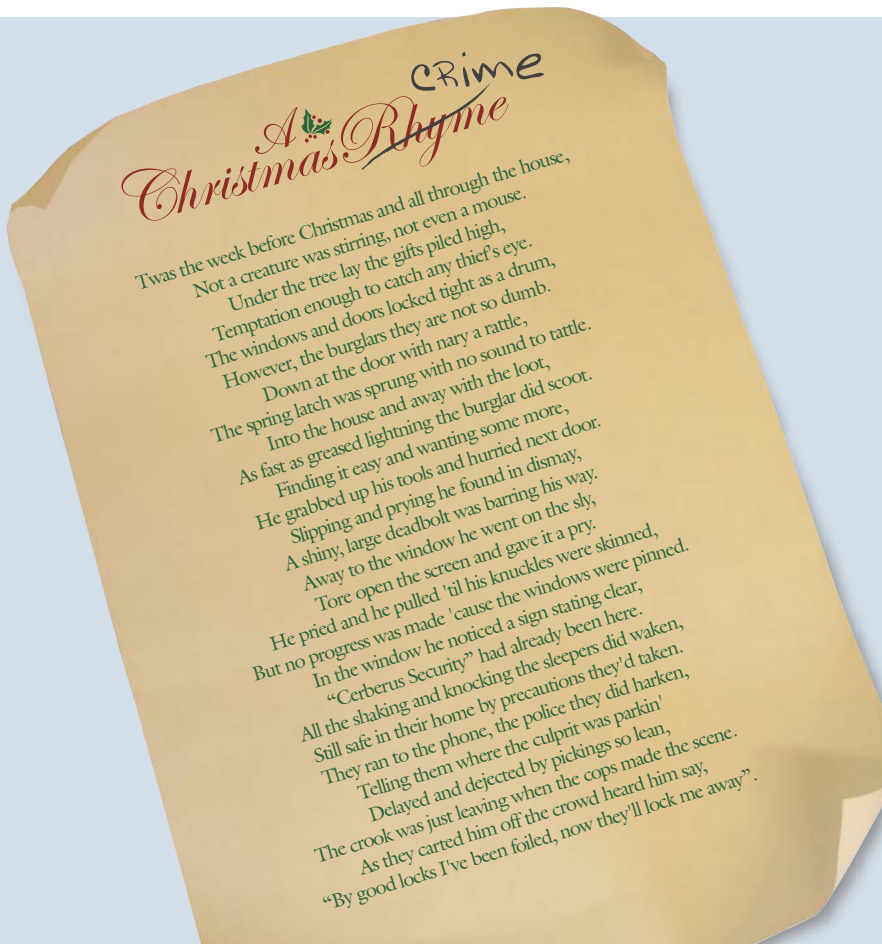 CRime
A
Christmas Rhyme
Twas the week before Christmas and all through the house,
Not a creature was stirring, not even a mouse.
Under the tree lay the gifts piled high,
Temptation enough to catch any thief's eye.
The windows and doors locked tight as a drum,
However, the burglars they are not so dumb.
Down at the door with nary a rattle,
The spring latch was sprung with no sound to tattle.
Into the house and away with the loot,
As fast as greased lightning the burglar did scoot.
Finding it easy and wanting some more,
He grabbed up his tools and hurried next door.
Slipping and prying he found in dismay,
A shiny, large deadbolt was barring his way.
Away to the window he went on the sly,
Tore open the screen and gave it a pry.
He pried and he pulled 'til his knuckles were skinned,
But no progress was made 'cause the windows were pinned.
In the window he noticed a sign stating clear,
“Cerberus Security” had already been here.
All the shaking and knocking the sleepers did waken,
Still safe in their home by precautions they'd taken.
They ran to the phone, the police they did harken,
Telling them where the culprit was parkin'
Delayed and dejected by pickings so lean,
The crook was just leaving when the cops made the scene.
As they carted him off the crowd heard him say,
“By good locks I've been foiled, now they'll lock me away”.